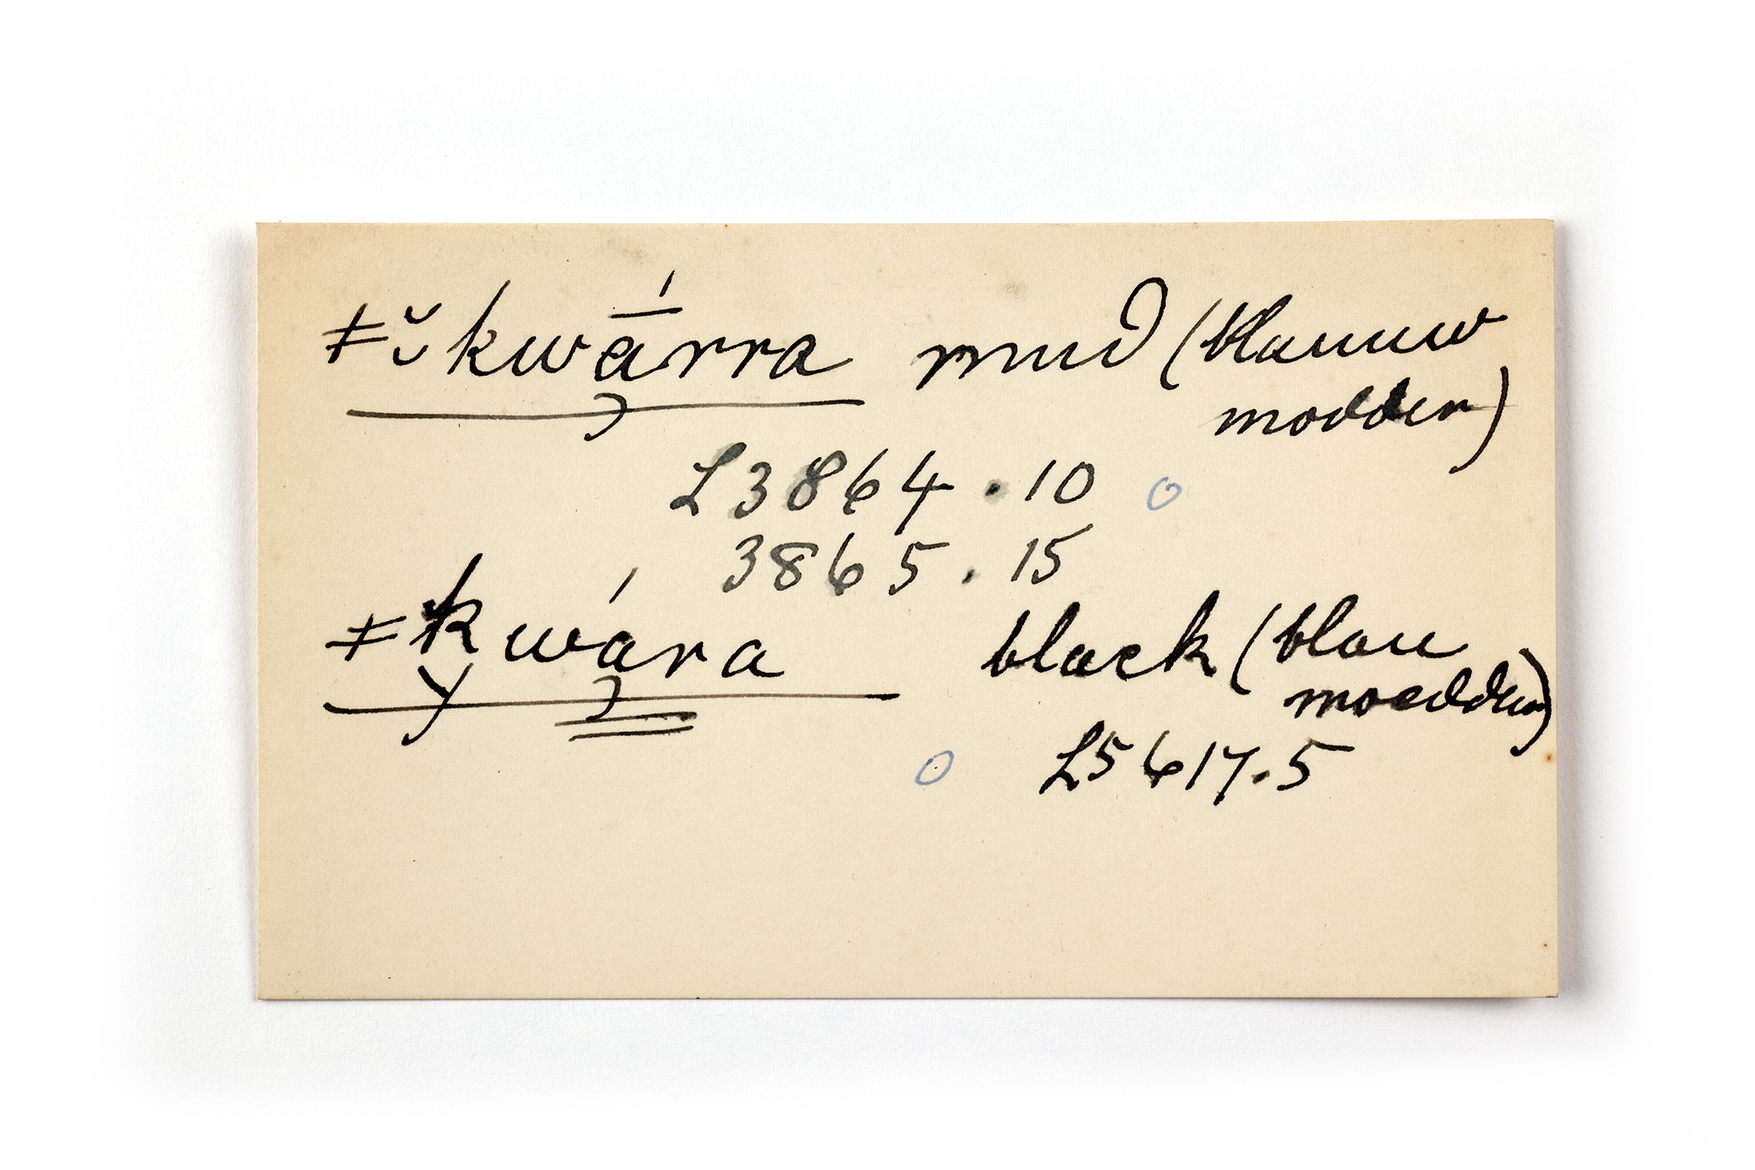 ǂ̆kwā́rra mud (blauuw
modder)
L3864.10 o
3865.15
ǂkwára black (blau
moedder)
o L5617.5